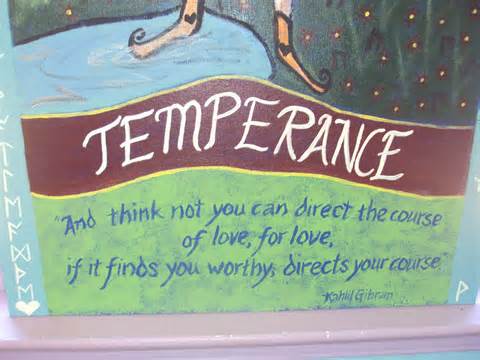 TEMPERANCE
"And think not you can direct the course
of love, for love,
if it finds you worthy, directs your course.
Kahlil Gibran